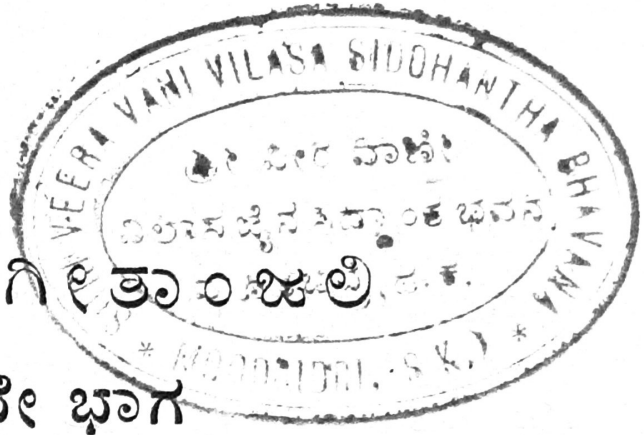 SHRI VEERA VANI VILASA SIDDHANTHA BHAVANA
ಶ್ರೀ ವೀರ ವಾಣೀ
ವಿಲಾಸ ಜೈನ ಸಿದ್ಧಾಂತ ಭವನ
ದ.ಕ.
* MOODBIDRI. (S.K.) *
ಗೀತಾಂಜಲಿ
ಭಾಗ